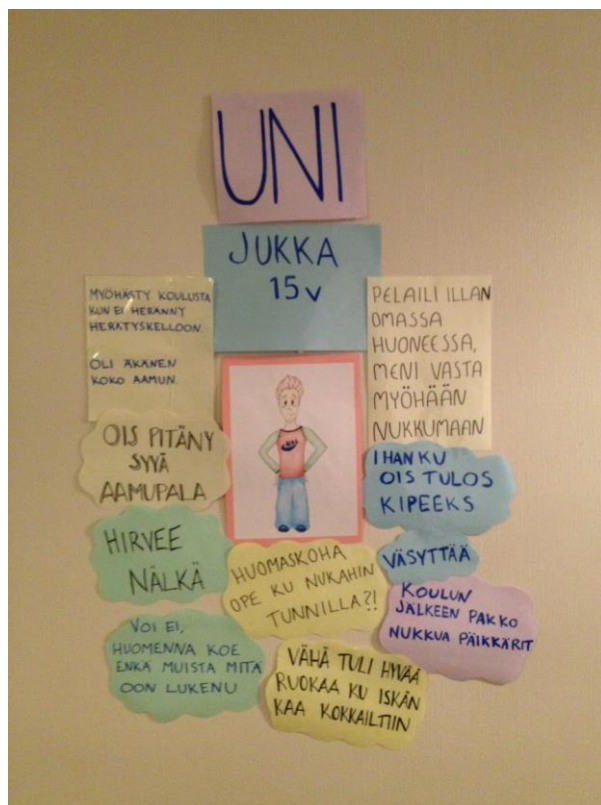 UNI
JUKKA
15v
MYÖHÄSTY KOULUSTA
KUN EI HERÄNNY
HERÄTYSKELLOON.
OLI ÄKÄNEN
KOKO AAMUN.
PELAILI ILLAN
OMASSA
HUONEESSA,
MENI VASTA
MYÖHÄÄN
NUKKUMAAN
OIS PITÄNY
SYYÄ
AAMUPALA
IHAN KU
OIS TULOS
KIPEEKS
HIRVEE
NÄLKÄ
HUOMASKOHA
OPE KU NUKAHIN
TUNNILLA?!
VÄSYTTÄÄ
KOULUN
JÄLKEEN PAKKO
NUKKUA PÄIKKÄRIT
VOI EI,
HUOMENNA KOE
ENKÄ MUISTA MITÄ
OON LUKENU
VÄHÄ TULI HYVÄÄ
RUOKAA KU ISKÄN
KAA KOKKAILTIIN